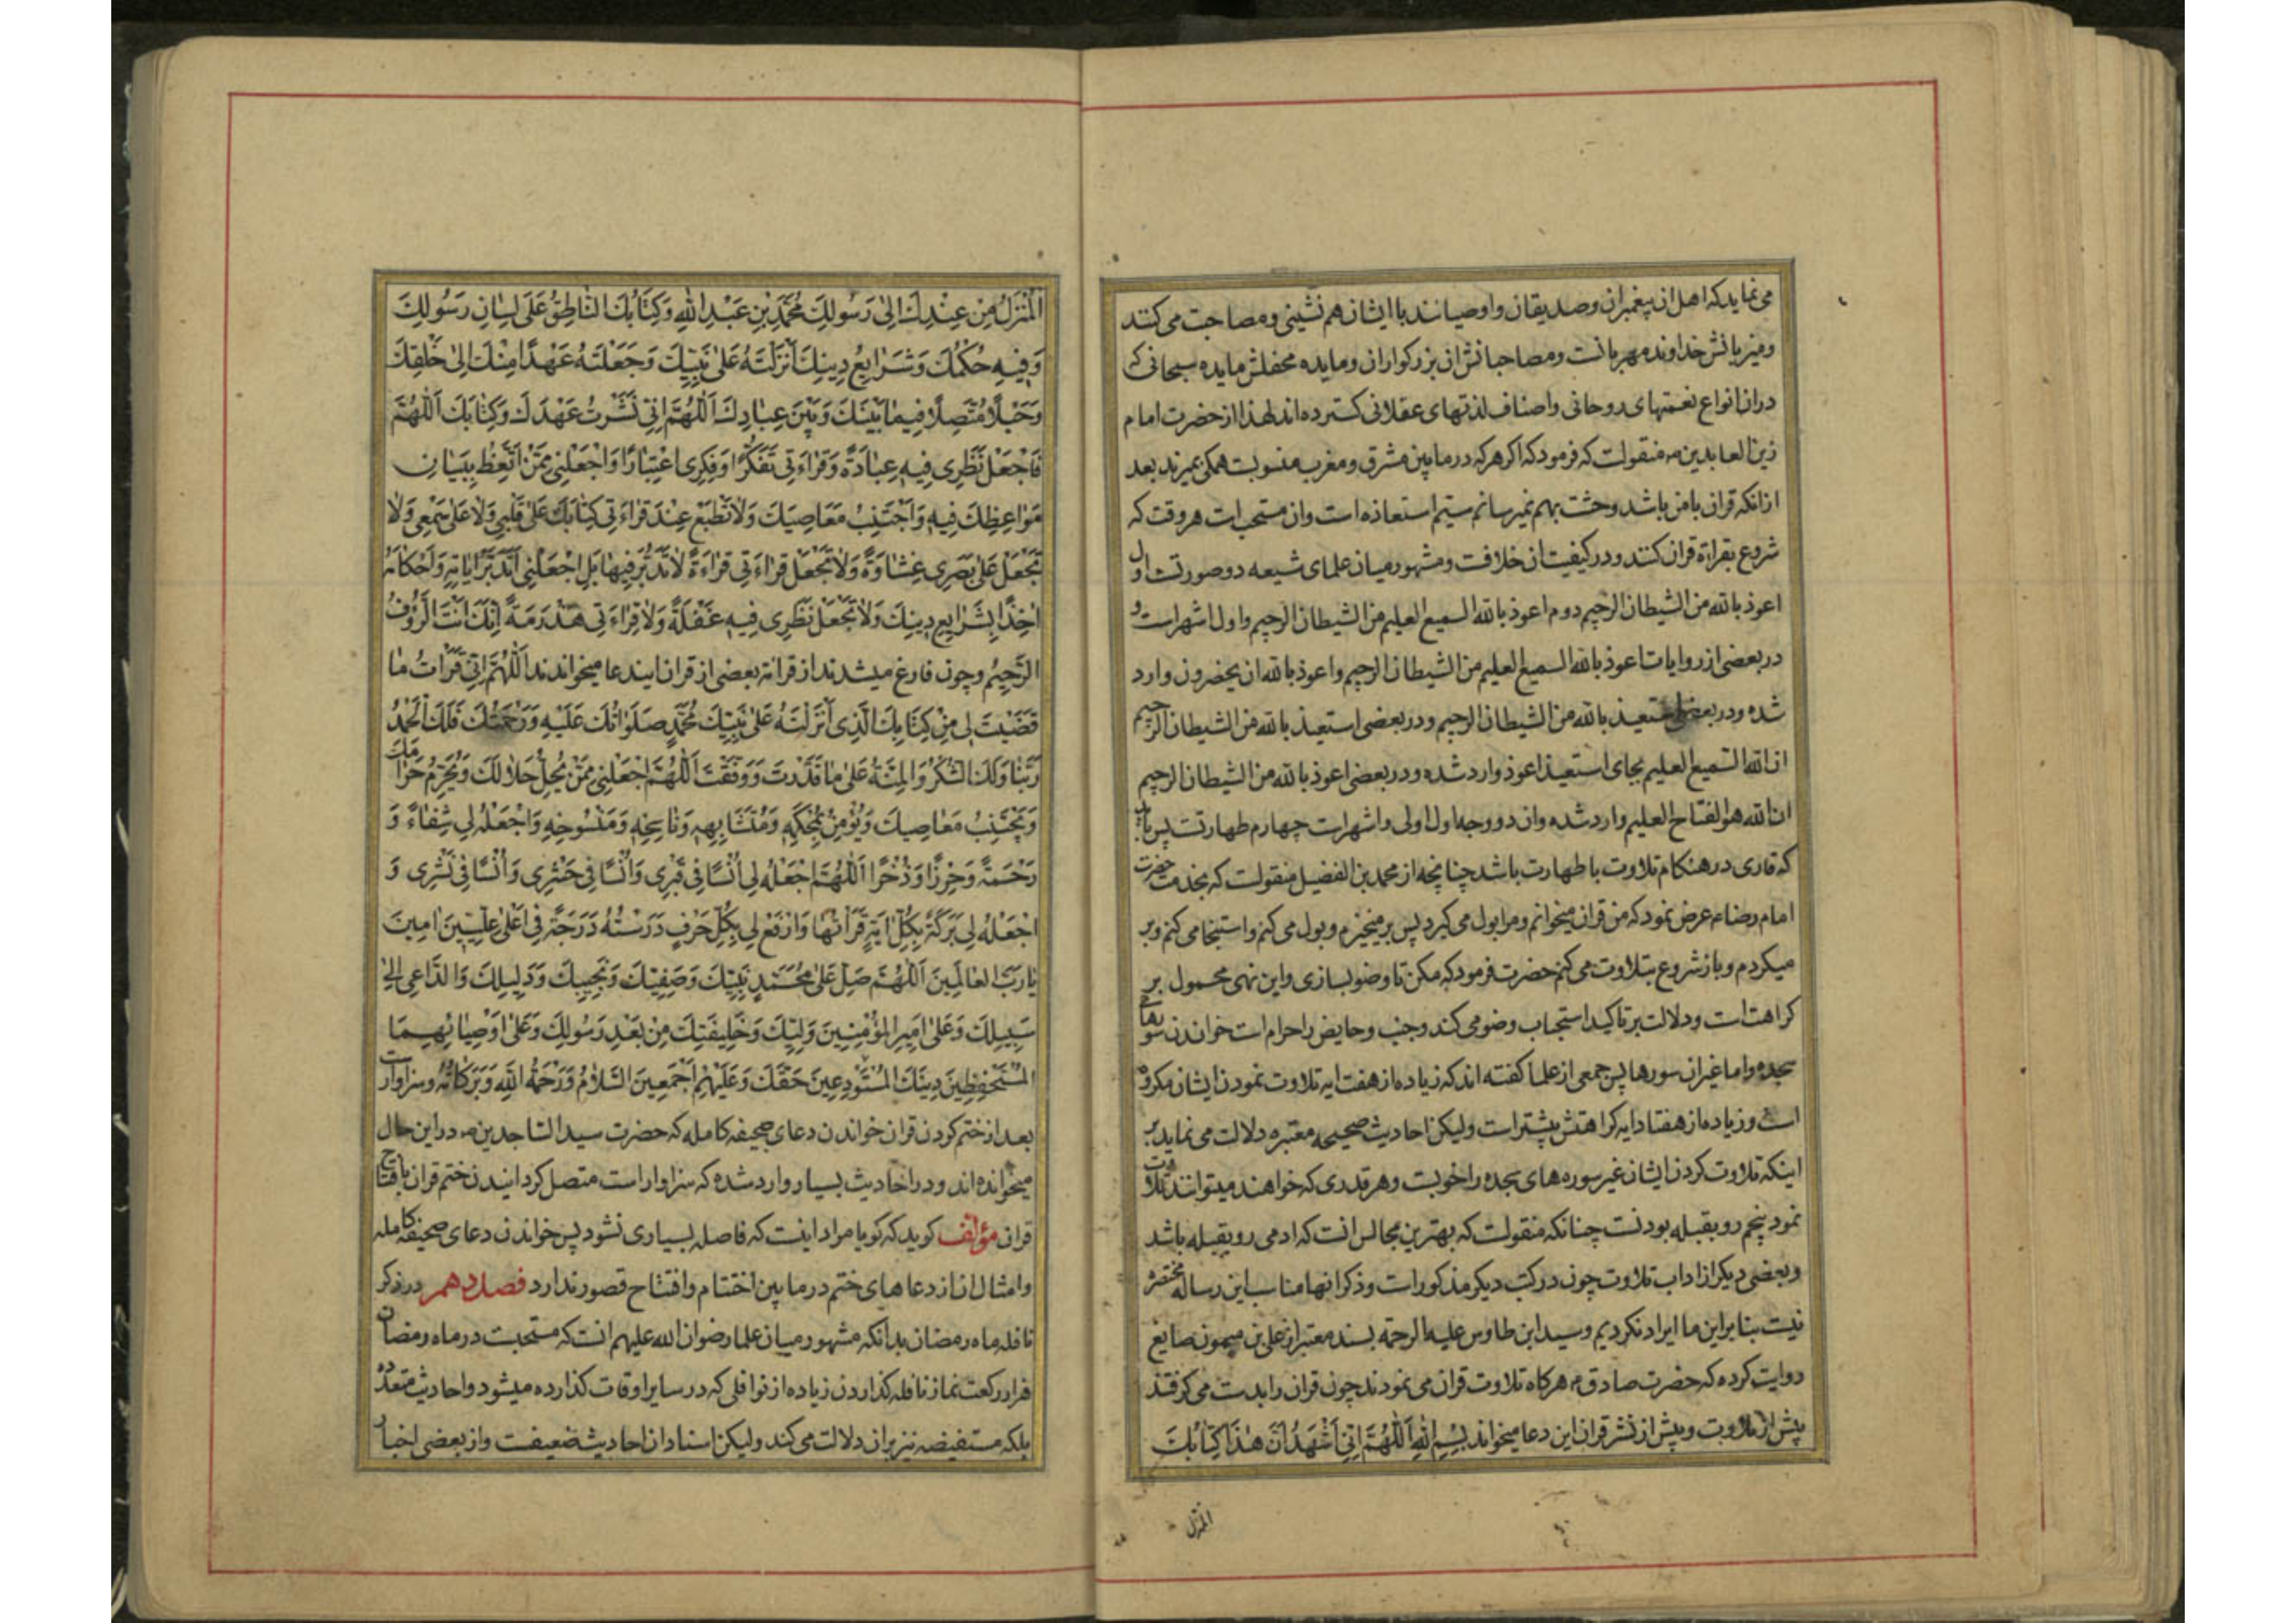 می‌نماید که اهل ان پیغمبران و صدیقان و اوصیا‌نند با ایشان هم نشینی و مصاحبت می کنند
و میزبانش خداوند مهربانست و مصاحبانش ان بزرکواران و مایده محفلش مایده سبحانی که
دران انواع نعمتهای روحانی و اصناف لذتهای عقلانی کسترده اند لهذا از حضرت امام
زین العابدین ع منقولست که فرمود که اکر هر که در ما بین مشرق و مغرب منسوبست همکی بمیرند بعد
ازانکه قران با من باشد وحشت بهم نمیرسانم سیم استعاذه است وان مستحب است هر وقت که
شروع بقراة قران کنند و در کیفیت ان خلافست و مشهور میان علمای شیعه دو صورتست اول
اعوذ بالله من الشیطان الرجیم دوم اعوذ بالله السمیع العلیم من الشیطان الرجیم و اول اشهر است و
در بعضی از روایات اعوذ بالله السمیع العلیم من الشیطان الرجیم و اعوذ بالله ان یحضرون وارد
شده و در بعضی استعیذ بالله من الشیطان الرجیم و در بعضی استعیذ بالله من الشیطان الرجیم
ان الله السمیع العلیم بجای استعیذ اعوذ وارد شده و در بعضی اعوذ بالله من الشیطان الرجیم
ان الله هو الفتاح العلیم وارد شده وان دو وجه اول اولی و اشهر است چهارم طهارتست پس باید
که قاری در هنکام تلاوت با طهارت باشد چنانچه از محمد بن الفضیل منقولست که بخدمت حضرت
امام رضا ع عرض نمود که من قران میخوانم و مرا بول می کیرد پس بر میخیزم و بول می کنم و استنجا می کنم و بر
میکردم و باز شروع بتلاوت می کنم حضرت فرمود که مکن تا وضو بسازی و این نهی محمول بر
کراهت است و دلالت بر تاکید استحباب وضو می کند و جنب و حایض را حرام است خواندن سورهای
سجده و اما غیر ان سورها پس جمعی از علما کفته اند که زیاده از هفت ایه تلاوت نمودن ایشان مکروه
است و زیاده از هفتاد ایه کراهتش بیشتر است ولیکن احادیث صحیحه معتبره دلالت می نماید بر
اینکه تلاوت کردن ایشان غیر سوره های سجده را خوبست و هر قدری که خواهند میتوانند تلاوت
نمود پنجم رو بقبله بودنست چنانکه منقولست که بهترین مجالس انست که ادمی رو بقبله باشد
و بعضی دیکر از اداب تلاوت چون در کتب دیکر مذکور است و ذکر انها مناسب این رساله مختصره
نیست بنا براین ما ایراد نکردیم و سید ابن طاوس علیه الرحمه بسند معتبر از علی بن میمون صایغ
روایت کرده که حضرت صادق ع هرکاه تلاوت قران می نمودند چون قران را بدست می کرفتند
پیش از تلاوت و پیش از نشر قران این دعا میخواند بِسْمِ اللهِ اَللّٰهُمَّ اِنّی اَشْهَدُ اَنَّ هٰذَا کِتٰابُکَ
المنزل
اَلْمُنْزَلُ مِنْ عِنْدِکَ اِلیٰ رَسُولِکَ مُحَمَّدِ بْنِ عَبْدِ اللهِ وَکِتٰابُکَ النّٰاطِقُ عَلیٰ لِسٰانِ رَسُولِکَ
وَفِیهِ حُکْمُکَ وَشَرٰایِعُ دِینِکَ اَنْزَلْتَهُ عَلیٰ نَبِیِّکَ وَجَعَلْتَهُ عَهْدًا مِنْکَ اِلیٰ خَلْقِکَ
وَحَبْلًا مُتَّصِلًا فِیمٰا بَیْنَکَ وَبَیْنَ عِبٰادِکَ اَللّٰهُمَّ اِنّی نَشَرْتُ عَهْدَکَ وَکِتٰابَکَ اَللّٰهُمَّ
فَاجْعَلْ نَظَرِی فِیهِ عِبٰادَةً وَقِرٰاءَتِی تَفَکُّرًا وَفِکْرِی اعْتِبٰارًا وَاجْعَلْنِی مِمَّنْ اتَّعَظَ بِبَیٰانِ
مَوٰاعِظِکَ فِیهِ وَاجْتَنَبَ مَعٰاصِیَکَ وَلٰا تَطْبَعْ عِنْدَ قِرٰاءَتِی کِتٰابَکَ عَلیٰ قَلْبِی وَلٰا عَلیٰ سَمْعِی وَلٰا
تَجْعَلْ عَلیٰ بَصَرِی غِشٰاوَةً وَلٰا تَجْعَلْ قِرٰاءَتِی قِرٰاءَةً لٰا تَدَبُّرَ فِیهٰا بَلِ اجْعَلْنِی اَتَدَبَّرُ اٰیٰاتِهِ وَاَحْکٰامَهُ
اٰخِذًا بِشَرٰایِعِ دِینِکَ وَلٰا تَجْعَلْ نَظَرِی فِیهِ غَفْلَةً وَلٰا قِرٰاءَتِی هَذْرَمَةً اِنَّکَ اَنْتَ الرَّؤُفُ
الرَّحِیمُ و چون فارغ میشدند از قرائة بعضی از قران ایندعا میخواندند اَللّٰهُمَّ اِنّی قَرَأْتُ مٰا
قَضَیْتَ لِی مِنْ کِتٰابِکَ الَّذِی اَنْزَلْتَهُ عَلیٰ نَبِیِّکَ مُحَمَّدٍ صَلَوٰاتُکَ عَلَیْهِ وَرَحْمَتُکَ فَلَکَ الْحَمْدُ
رَبَّنٰا وَلَکَ الشُّکْرُ وَالْمِنَّةُ عَلیٰ مٰا قَدَّرْتَ وَوَفَّقْتَ اَللّٰهُمَّ اجْعَلْنِی مِمَّنْ یُحِلُّ حَلٰالَکَ وَیُحَرِّمُ حَرٰامَکَ
وَیَجْتَنِبُ مَعٰاصِیَکَ وَیُؤْمِنُ بِمُحْکَمِهِ وَمُتَشٰابِهِهِ وَنٰاسِخِهِ وَمَنْسُوخِهِ وَاجْعَلْهُ لِی شِفٰاءً وَ
رَحْمَةً وَحِرْزًا وَذُخْرًا اَللّٰهُمَّ اجْعَلْهُ لِی اُنْسًا فِی قَبْرِی وَاُنْسًا فِی حَشْرِی وَاُنْسًا فِی نَشْرِی وَ
اجْعَلْهُ لِی بَرَکَةً بِکُلِّ اٰیَةٍ قَرَأْتُهٰا وَارْفَعْ لِی بِکُلِّ حَرْفٍ دَرَسْتُهُ دَرَجَةً فِی اَعْلیٰ عِلِّیِّینَ اٰمِینَ
یٰا رَبَّ الْعٰالَمِینَ اَللّٰهُمَّ صَلِّ عَلیٰ مُحَمَّدٍ نَبِیِّکَ وَصَفِیِّکَ وَنَجِیبِکَ وَدَلِیلِکَ وَالدّٰاعِی اِلیٰ
سَبِیلِکَ وَعَلیٰ اَمِیرِ الْمُؤْمِنِینَ وَلِیِّکَ وَخَلِیفَتِکَ مِنْ بَعْدِ رَسُولِکَ وَعَلیٰ اَوْصِیٰائِهِمَا
الْمُسْتَحْفِظِینَ دِینَکَ الْمُسْتَوْدِعِینَ حَقَّکَ وَعَلَیْهِمْ اَجْمَعِینَ السَّلٰامُ وَرَحْمَةُ اللهِ وَبَرَکٰاتُهُ و سزاوارست
بعد از ختم کردن قران خواندن دعای صحیفه کامله که حضرت سید الساجدین ع در این حال
میخوانده اند و در احادیث بسیار وارد شده که سزاوار است متصل کردانیدن ختم قران بافتتاح
قران مؤلف کوید که کویا مراد اینست که فاصله بسیاری نشود پس خواندن دعای صحیفه کامله
و امثال ان از دعاهای ختم در ما بین اختتام و افتتاح قصور ندارد فصل دهم در ذکر
نافله ماه رمضان بدانکه مشهور میان علما رضوان الله علیهم انست که مستحبست در ماه رمضان
هزار رکعت نماز نافله کذاردن زیاده از نوافلی که در سایر اوقات کذارده میشود و احادیث متعدده
بلکه مستفیضه نیز بران دلالت می کند ولیکن اسناد ان احادیث ضعیفست و از بعضی اخبار